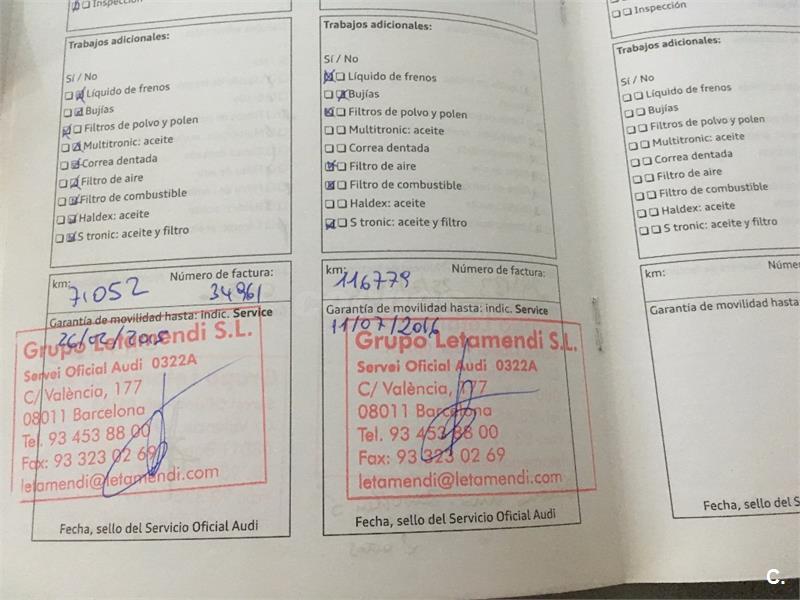 Inspección
Trabajos adicionales:
Sí / No
Líquido de frenos
Bujías
Filtros de polvo y polen
Multitronic: aceite
Correa dentada
Filtro de aire
Filtro de combustible
Haldex: aceite
S tronic: aceite y filtro
km: Número de factura:
71052 34961
Garantía de movilidad hasta: indic. Service
Grupo Letamendi S.L.
Servei Oficial Audi 0322A
C/ València, 177
08011 Barcelona
Tel. 93 453 88 00
Fax: 93 323 02 69
letamendi@letamendi.com
Fecha, sello del Servicio Oficial Audi
Trabajos adicionales:
Sí / No
Líquido de frenos
Bujías
Filtros de polvo y polen
Multitronic: aceite
Correa dentada
Filtro de aire
Filtro de combustible
Haldex: aceite
S tronic: aceite y filtro
km: Número de factura:
116779
Garantía de movilidad hasta: indic. Service
11/07/2016
Grupo Letamendi S.L.
Servei Oficial Audi 0322A
C/ València, 177
08011 Barcelona
Tel. 93 453 88 00
Fax: 93 323 02 69
letamendi@letamendi.com
Fecha, sello del Servicio Oficial Audi
Inspección
Trabajos adicionales:
Sí / No
Líquido de frenos
Bujías
Filtros de polvo y polen
Multitronic: aceite
Correa dentada
Filtro de aire
Filtro de combustible
Haldex: aceite
S tronic: aceite y filtro
km: Núme
Garantía de movilidad hasta
Fecha, sello del S
C.